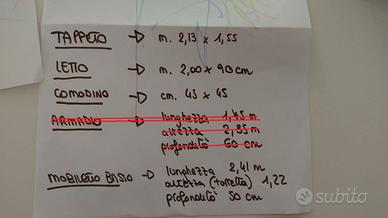 TAPPETO → m. 2,13 x 1,55
LETTO → m. 2,00 x 90 cm
COMODINO → cm. 45 x 45
ARMADIO → lunghezza 1,45 m
altezza 2,85 m
profondità 60 cm
MOBILETTO BASSO → lunghezza 2,41 m
altezza (torretta) 1,22
profondità 50 cm
subito